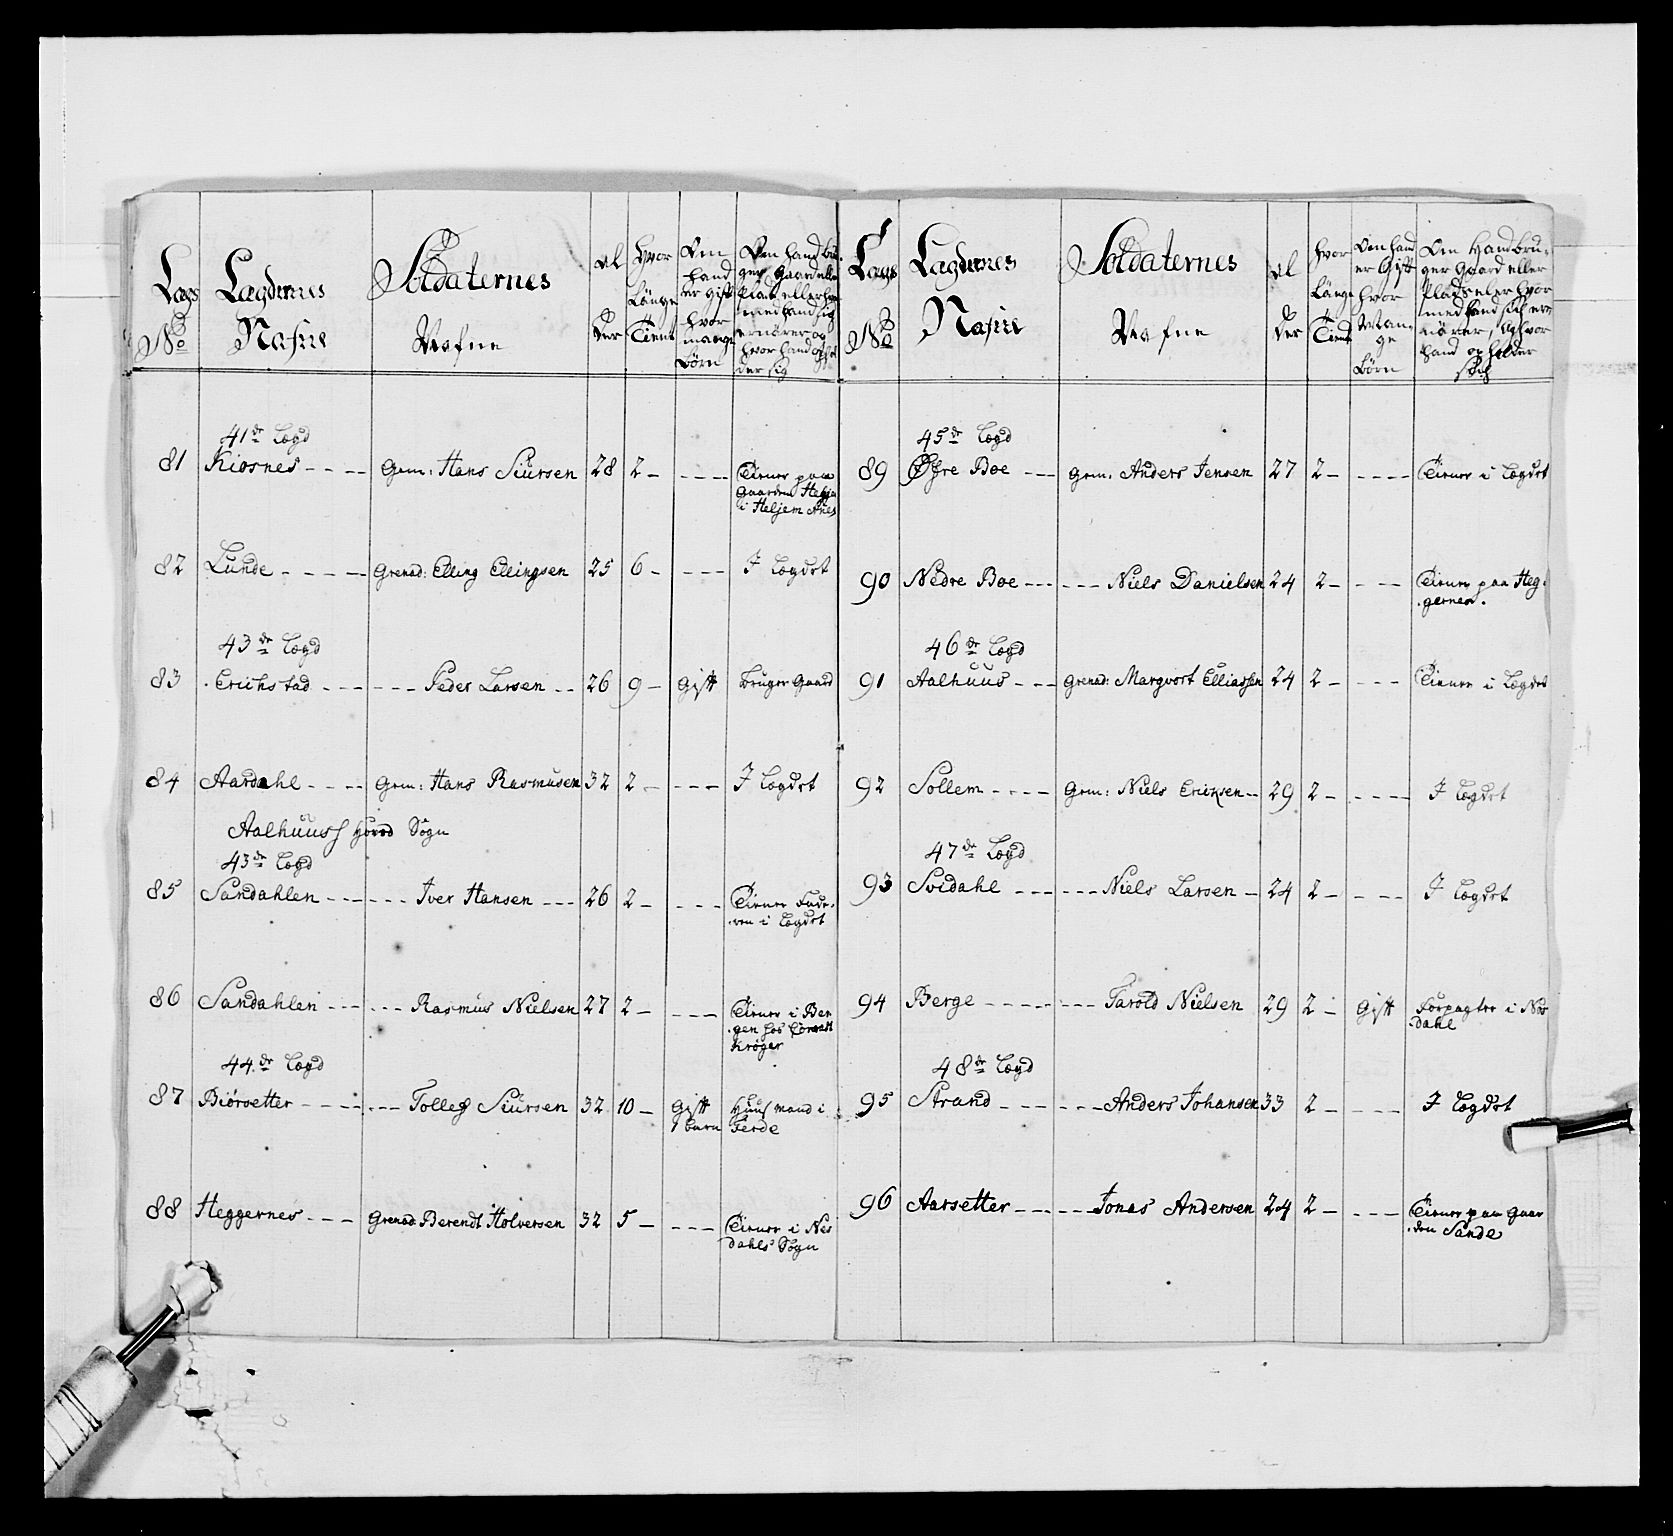 Lægs No
Lægdernes Nafne
Soldaternes Nafne
Alder
Hvor Længe Tient
Om hand er gift hvor mange Börn
Om hand bruger Gaard eller Plads eller hvor med hand sig ernörer og hvor hand opholder sig
41de Lægd
81 Kiosnes - - - - Gem: Hans Siursen 28 2 - - - - - Tiener paa
Gaarden
i Heljem
82 Lunde - - - - - Grenad: Elling Ellingsen 25 6 - - - - I Lægdet
43de Lægd
83 Erichstad - - - - - - Peder Larsen - - 26 9 - Gift bruger Gaard
84 Aardahl - - - - Gem: Hans Rasmusen 32 2 - - - - I Lægdet
Aalhuus Sogn
43de Lægd
85 Sandahlen - - - - - - Iver Hansen - - - 26 2 - - - - Tiener Fade-
ren i Lægdet
86 Sandahlen - - - - - - Rasmus Nielsen 27 2 - - - - Tiener i Ber
gen hos
Kröger
44de Lægd
87 Biörsetter - - - - - - - Tollef Siursen 32 10 - Gift Huusmand i
1 barn Förde
88 Heggernes - - - Grenad: Berendt Holversen 32 5 - - - - Tiener i Nes
dahls Sogn
Lægs No
Lægdernes Nafne
Soldaternes Nafne
Alder
hvor Længe Tient
Om hand er Gift hvor Mange Börn
Om Hand bruger Gaard eller Plads eler hvor med hand sich ernörer, og hvor hand opholder sich
45de Lægd
89 Öfre Boe - - - Gem: Anders Jensen 27 2 - - - - - Tiener i Lægdet
90 Nedre Boe - - - - - - Niels Danielsen 24 2 - - - - Tiener paa Heg-
gernes.
46de Lægd
91 Aalhuus - - - Grenad: Margvort Elliassen 24 2 - - - - Tiener i Lægdet
92 Sollem - - - - Gem: Niels Ericksen - - 29 2 - - - - - I Lægdet
47de Lægd
93 Svidahl - - - - - - Niels Larsen - 24 2 - - - - I Lægdet
94 Berge - - - - - - - - Tarold Nielsen 29 2 - Gift Forpagter i Nes
dahl
48de Lægd
95 Strand - - - - - - - Anders Johansen 33 2 - - - - - I Lægdet
96 Aarsetter - - - - - - Jonas Andersen 24 2 - - - - Tiener paa Gaar
den Sande